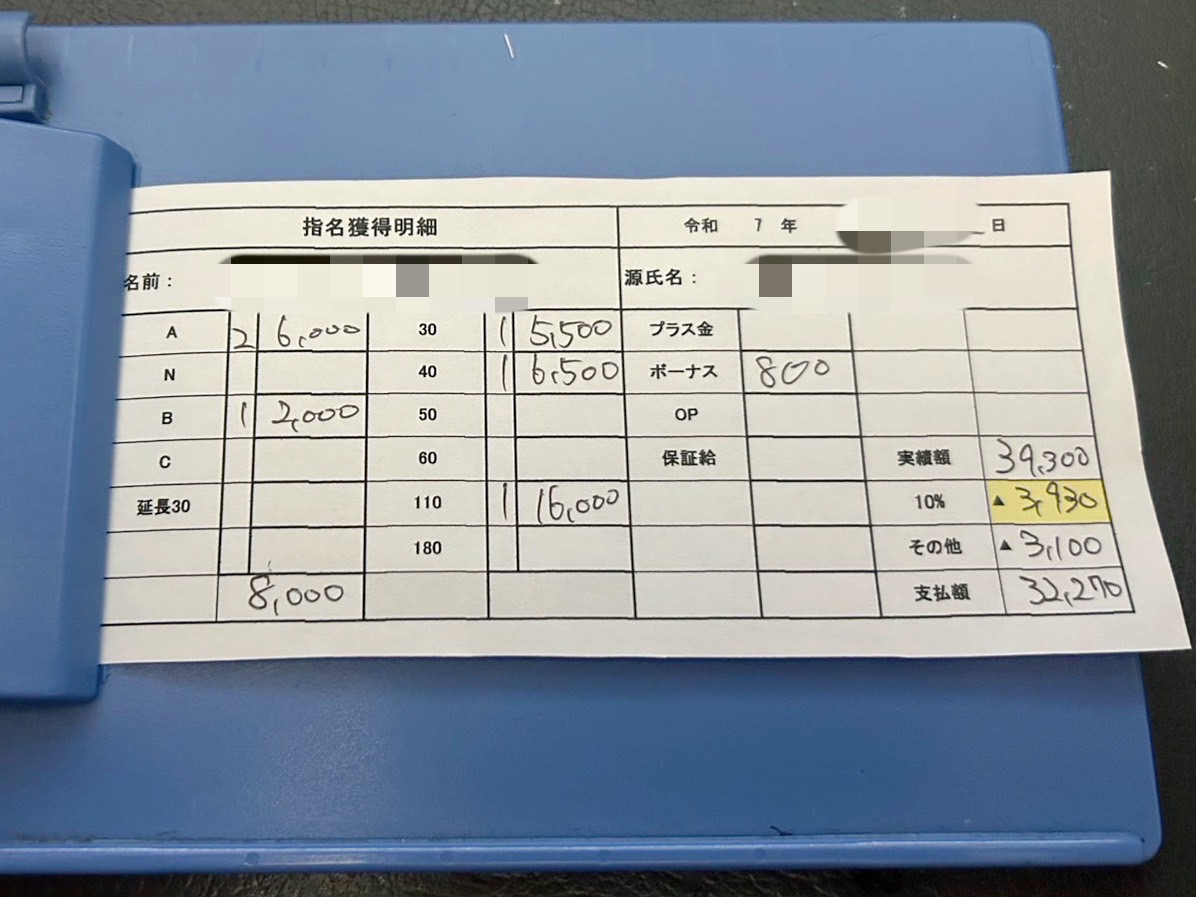 指名獲得明細 令和 7 年 日
名前： 源氏名：
A 2 6,000 30 1 5,500 プラス金
N 40 1 6,500 ボーナス 800
B 1 2,000 50 OP
C 60 保証給 実績額 39,300
延長30 110 1 16,000 10% ▲ 3,930
180 その他 ▲ 3,100
8,000 支払額 32,270